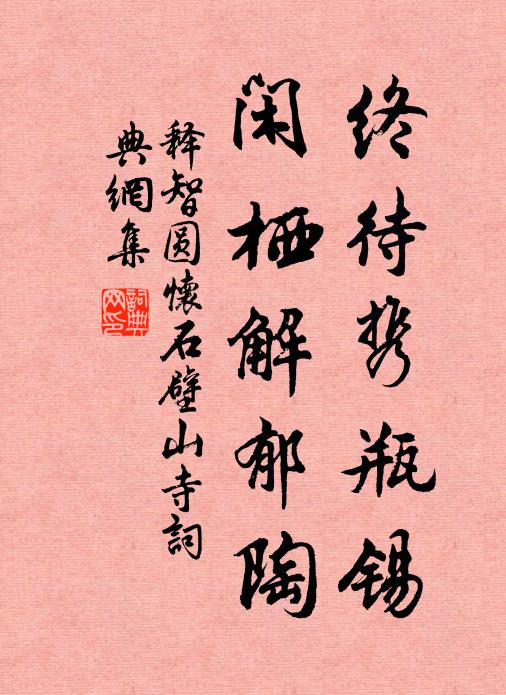 终待携瓶锡
闲栖解郁陶
释智圆怀石壁山寺词
典網集
詞典
网印